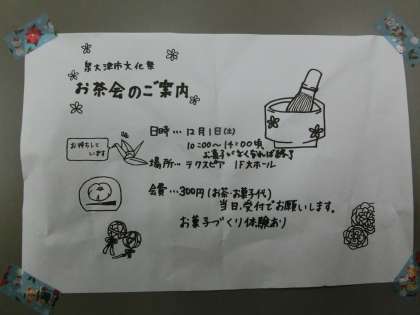 泉大津市文化祭
お茶会のご案内
日時…12月1日(土)
10:00〜14:00頃
お菓子がなくなれば終了
お待ちして
います
場所…テクスピア 1F大ホール
会費…300円(お茶・お菓子代)
当日、受付でお願いします。
お菓子づくり体験あり